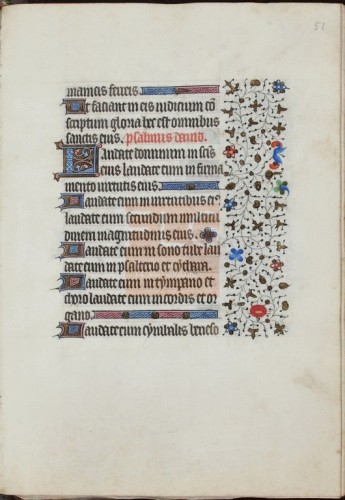 51
manicis ferreis.
Ut faciant in eis iudicium cō
scriptum gloria hec est omnibus
sanctis eius. psalmus david.
Laudate dominum in scīs
eius laudate eum in firma
mento virtutis eius.
Laudate eum in virtutibus eiꝰ
laudate eum secundum multitu
dinem magnitudinis eius.
Laudate eum in sono tube lau
date eum in psalterio et cythara.
Laudate eum in tympano et
choro laudate eum in cordis et or
gano.
Laudate eum cymbalis beneso